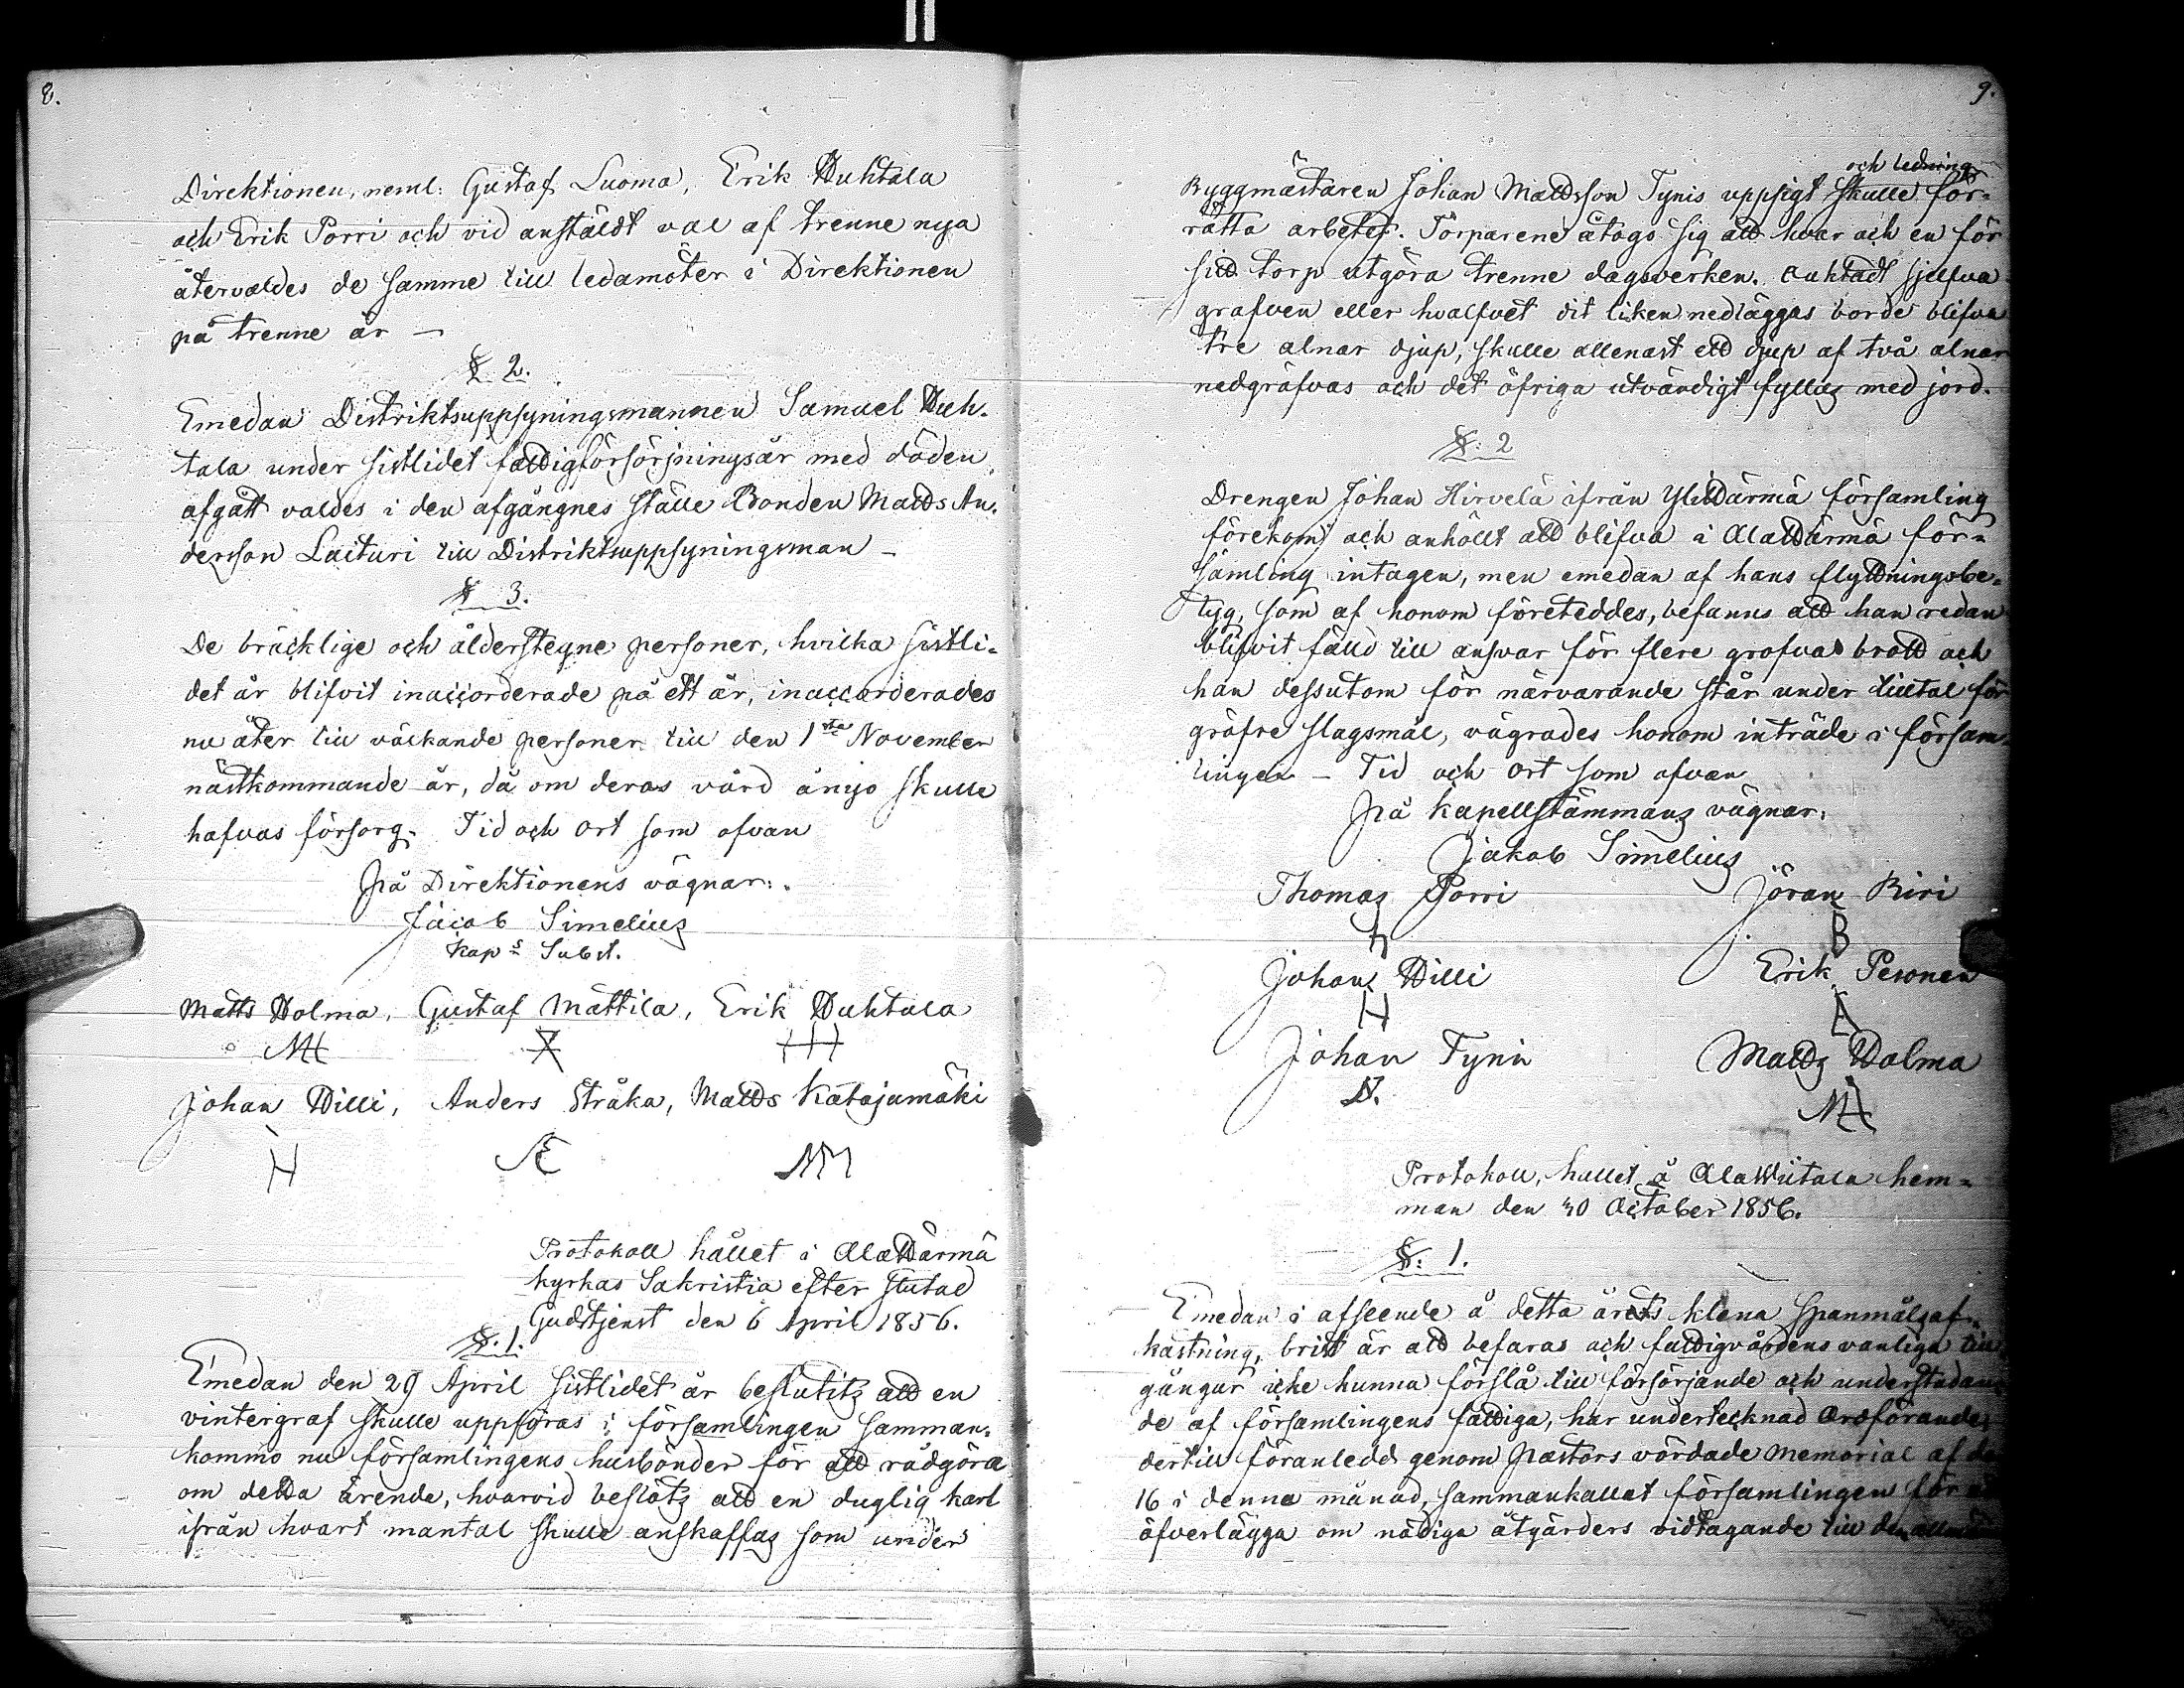 8.
Direktionen, neml: Gustaf Luoma, Erik Huhtala
och Erik Porri och vid anstäldt val af trenne nya
återvaldes de samme till ledamöter i Direktionen
på trenne år —
§ 2.
Emedan Distriktsuppsyningsmannen Samuel Huh-
tala under sistlidet fattigförsörjningsår med döden
afgått valdes i den afgångnes ställe Bonden Matts An-
dersson Laituri till Distriktsuppsyningsman —
§ 3.
De bräcklige och ålderstegne personer, hvilka sistli-
det år blifvit inaccorderade på ett år, inaccorderades
nu åter till vårkande personer till den 1ste November
nästkommande år, då om deras vård ånyo skulle
hafvas försorg. Tid och ort som ofvan
På Direktionens vägnar:
Jacob Simelius
Kap:s Subst.
Matts Holma, Gustaf Mattila, Erik Huhtala
MH
Johan Hilli, Anders Stråka, Matts Katajamäki
H
Protokoll hållet i AlaHärmä
kyrkas Sakristia efter slutad
Gudstjenst den 6 April 1856.
§. 1.
Emedan den 29 April sistlidet år beslutits att en
vintergraf skulle uppföras i församlingen samman-
kommo nu församlingens husbönder för att rådgöra
om detta ärende, hvarvid beslöts att en duglig karl
ifrån hvart mantal skulle anskaffas som under
9.
och ledning
Byggmästaren Johan Mattsson Tynis uppsigt skulle för-
rätta arbetet. Torparene åtogo sig att hvar och en för
sitt torp utgöra trenne dagsverken. Ehuru sjelfva
grafven eller hvalfvet dit liken nedläggas borde blifva
tre alnar djup, skulle allenast ett djup af två alnar
nedgräfvas och det öfriga utvändigt fyllas med jord.
§: 2
Drengen Johan Hirvelä ifrån YliHärmä församling
förekom och anhöllt att blifva i AlaHärmä för-
samling intagen, men emedan af hans flyttningsbe-
tyg, som af honom företeddes, befanns att han redan
blifvit fälld till ansvar för flere grofva brott och
han dessutom för närvarande står under tilltal för
gröfre slagsmål, vägrades honom inträde i försam-
lingen — Tid och ort som ofvan
På kapellstämmans vägnar:
Jakob Simelius
Thomas Porri Jöran Riri
B
Johan Hilli Erik Pesonen
H E
Johan Tynis Matts Holma
MH
Protokoll, hållet å AlaWiitala hem-
man den 30 October 1856.
§: 1.
Emedan i afseende å detta årets klena spanmålsaf-
kastning, brist är att befaras och fattigvårdens vanliga till-
gångar icke kunna förslå till försörjande och understödan-
de af församlingens fattiga, har undertecknad Ordförande
dertill föranledd genom Pastors vördade Memorial af de
16 i denna månad, sammankallat församlingen för
öfverlägga om nödiga åtgärders vidtagande till